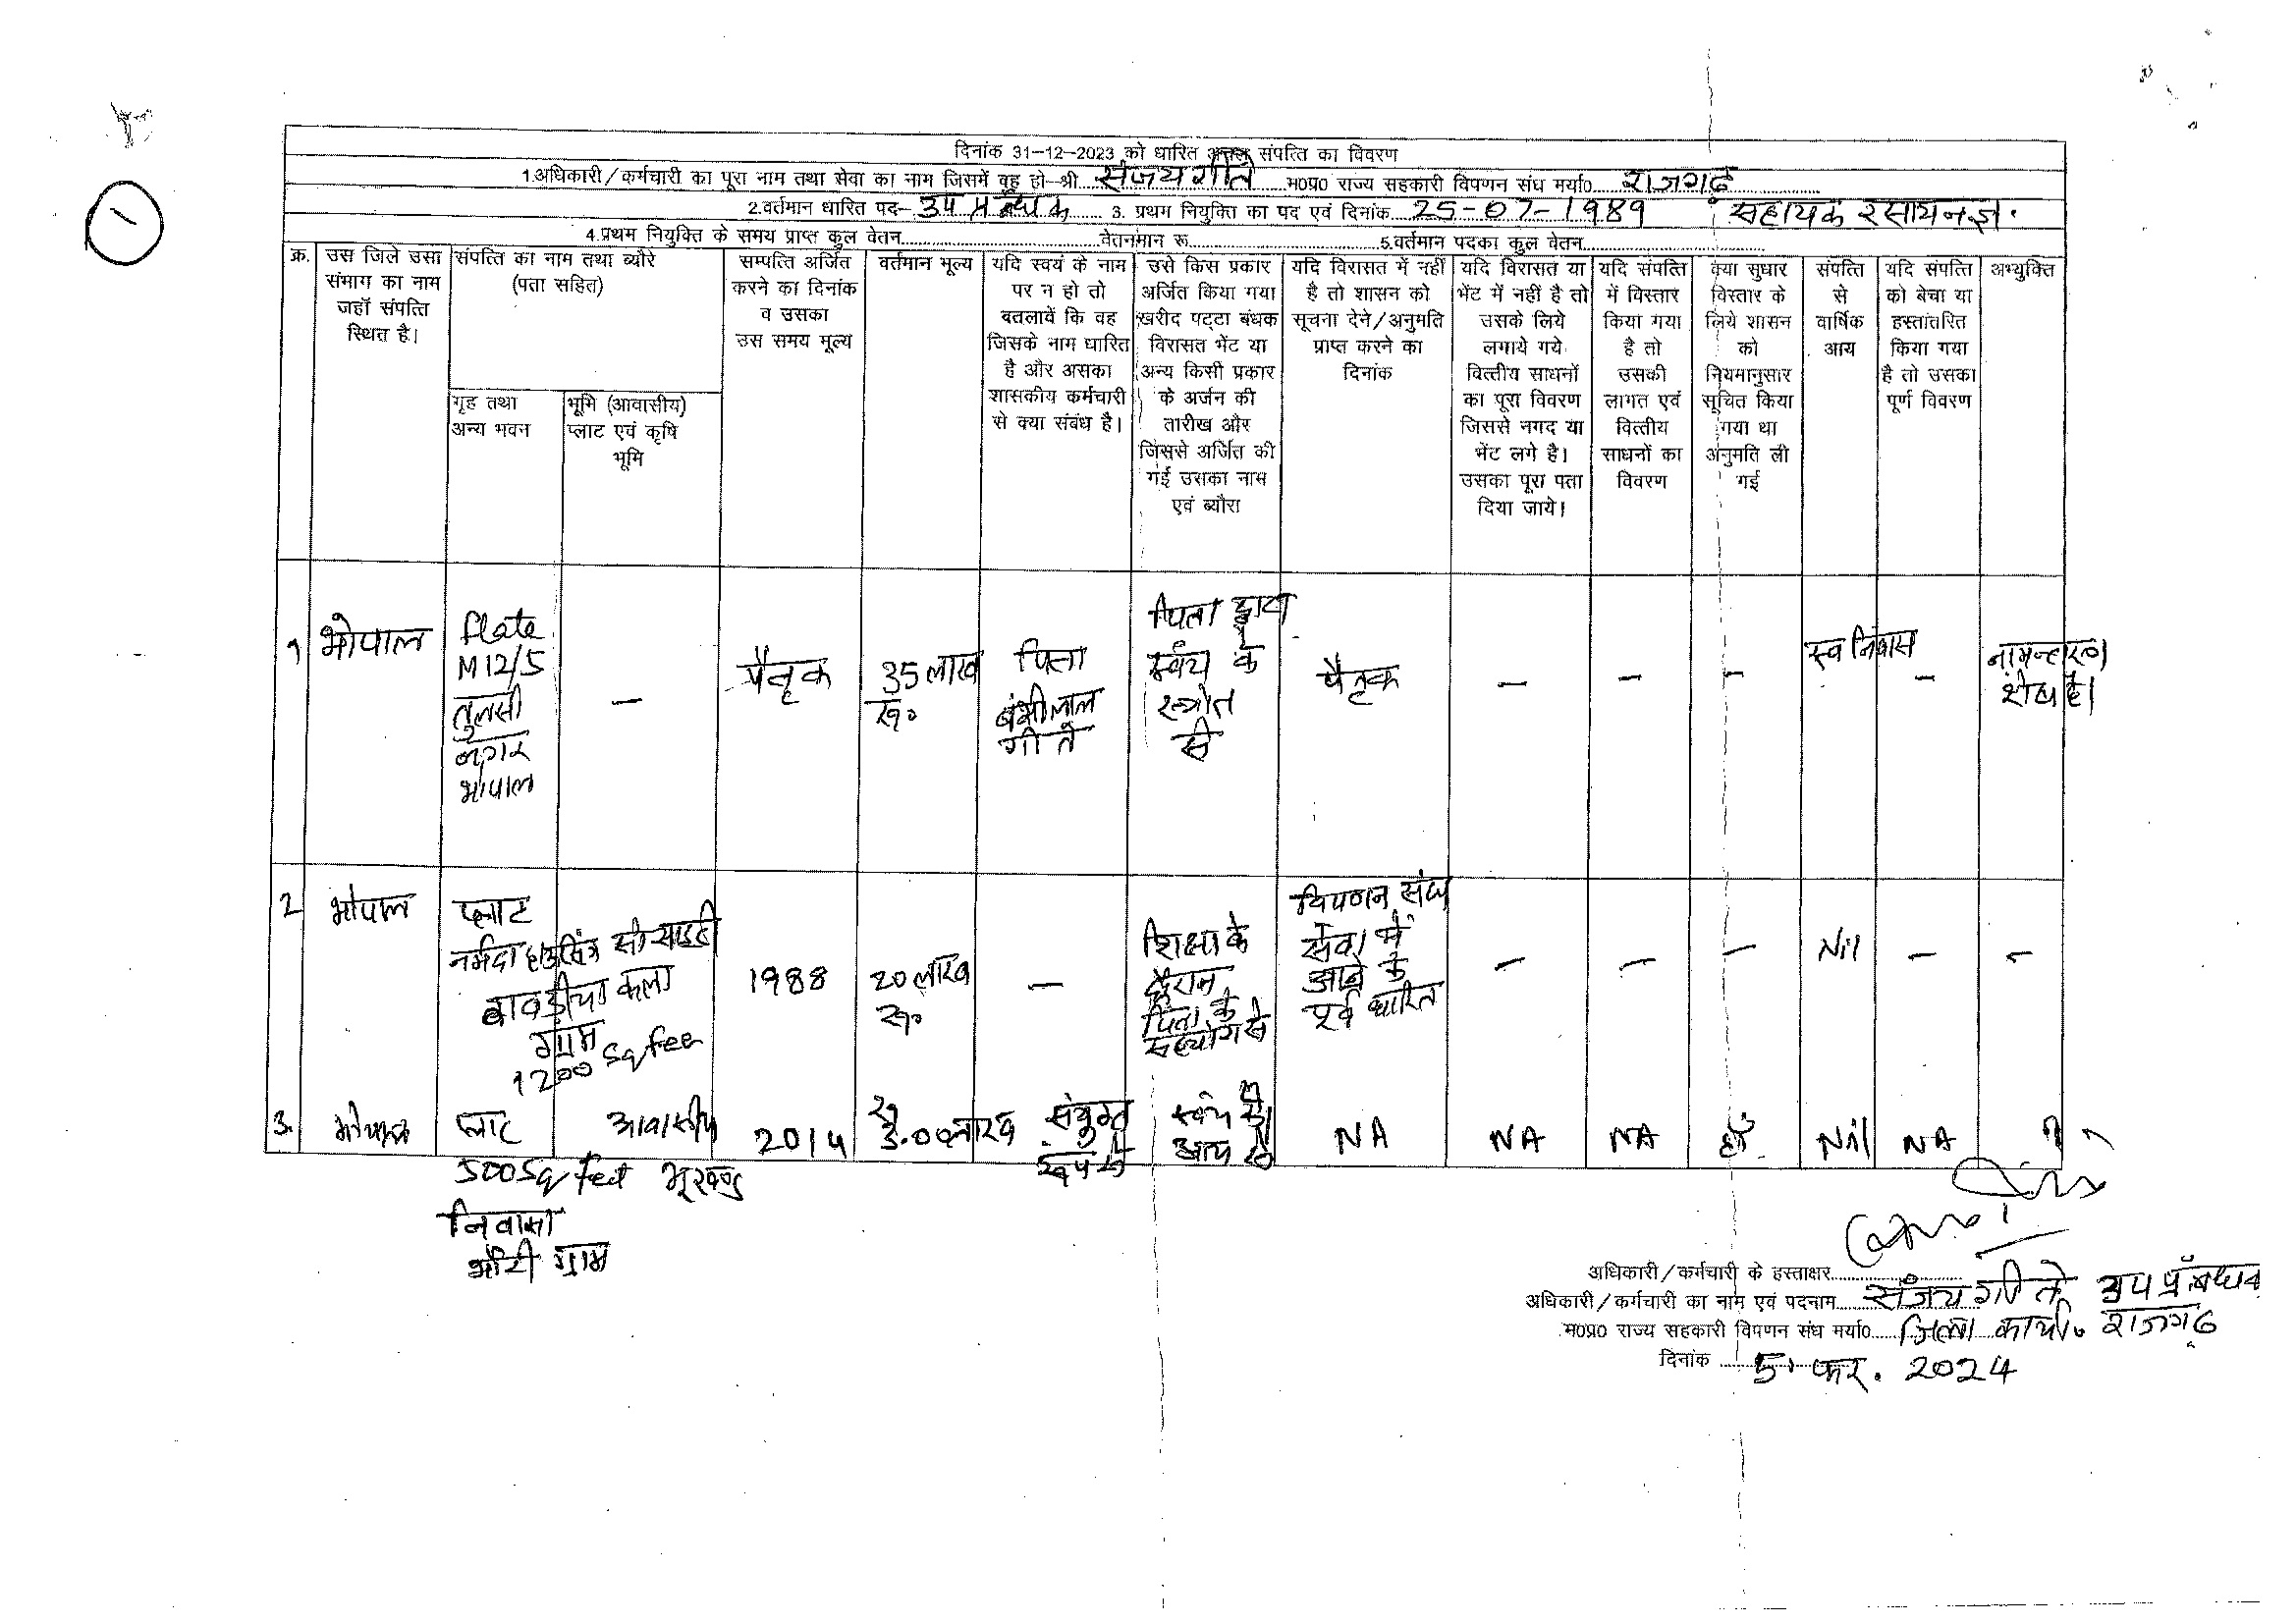 दिनांक 31-12-2023 को धारित अचल संपत्ति का विवरण
1.अधिकारी/कर्मचारी का पूरा नाम तथा सेवा का नाम जिसमें वह हो-श्री संजय गीते म०प्र० राज्य सहकारी विपणन संघ मर्या० राजगढ़
2.वर्तमान धारित पद- उप प्रबन्धक 3. प्रथम नियुक्ति का पद एवं दिनांक 25-07-1989 सहायक रसायनज्ञ.
4.प्रथम नियुक्ति के समय प्राप्त कुल वेतन वेतनमान रू 5.वर्तमान पदका कुल वेतन
क्र.
उस जिले उसा
संभाग का नाम
जहॉ संपत्ति
स्थित है।
संपत्ति का नाम तथा ब्यौरे
(पता सहित)
गृह तथा
अन्य भवन
भूमि (आवासीय)
प्लाट एवं कृषि
भूमि
सम्पत्ति अर्जित
करने का दिनांक
व उसका
उस समय मूल्य
वर्तमान मूल्य
यदि स्वयं के नाम
पर न हो तो
बतलावें कि वह
जिसके नाम धारित
है और असका
शासकीय कर्मचारी
से क्या संबंध है।
उसे किस प्रकार
अर्जित किया गया
खरीद पट्टा बंधक
विरासत भेंट या
अन्य किसी प्रकार
के अर्जन की
तारीख और
जिससे अर्जित की
गई उसका नाम
एवं ब्यौरा
यदि विरासत में नहीं
है तो शासन को
सूचना देने/अनुमति
प्राप्त करने का
दिनांक
यदि विरासत या
भेंट में नहीं है तो
उसके लिये
लगाये गये
वित्तीय साधनों
का पूरा विवरण
जिससे नगद या
भेंट लगे है।
उसका पूरा पता
दिया जाये।
यदि संपत्ति
में विस्तार
किया गया
है तो
उसकी
लागत एवं
वित्तीय
साधनों का
विवरण
क्या सुधार
विस्तार के
लिये शासन
को
नियमानुसार
सूचित किया
गया था
अनुमति ली
गई
संपत्ति
से
वार्षिक
आय
यदि संपत्ति
को बेचा या
हस्तांतरित
किया गया
है तो उसका
पूर्ण विवरण
अभ्युक्ति
1
भोपाल
Flate
M12/5
तुलसी
नगर
भोपाल
—
पैतृक
35 लाख
रू०
पिता
बंशीलाल
गीते
पिता द्वारा
स्वंय के
स्त्रोत
से
पैतृक
—
—
—
स्व निवास
—
नामन्तरण
शेष है।
2
भोपाल
प्लाट
नर्मदा हाउसिंग सोसाइटी
बावड़ीया कला
ग्राम
1200 sqfee
1988
20 लाख
रू०
—
शिक्षा के
दौरान
पिता के
सहयोग से
विपणन संघ
सेवा में
आने के
पूर्व धारित
—
—
—
Nil
—
—
3.
भोपाल
प्लाट आवासीय
500 Sq feet भूखण्ड
निवासी
भौरी ग्राम
2014
रू
3.00 लाख
संयुक्त
रूप से
स्वंय की
आय से
NA
NA
NA
हाँ
Nil
NA
अधिकारी/कर्मचारी के हस्ताक्षर
अधिकारी/कर्मचारी का नाम एवं पदनाम संजय गीते उप प्रबंधक
म०प्र० राज्य सहकारी विपणन संघ मर्या० जिला कार्या. राजगढ़
दिनांक 5. फर. 2024